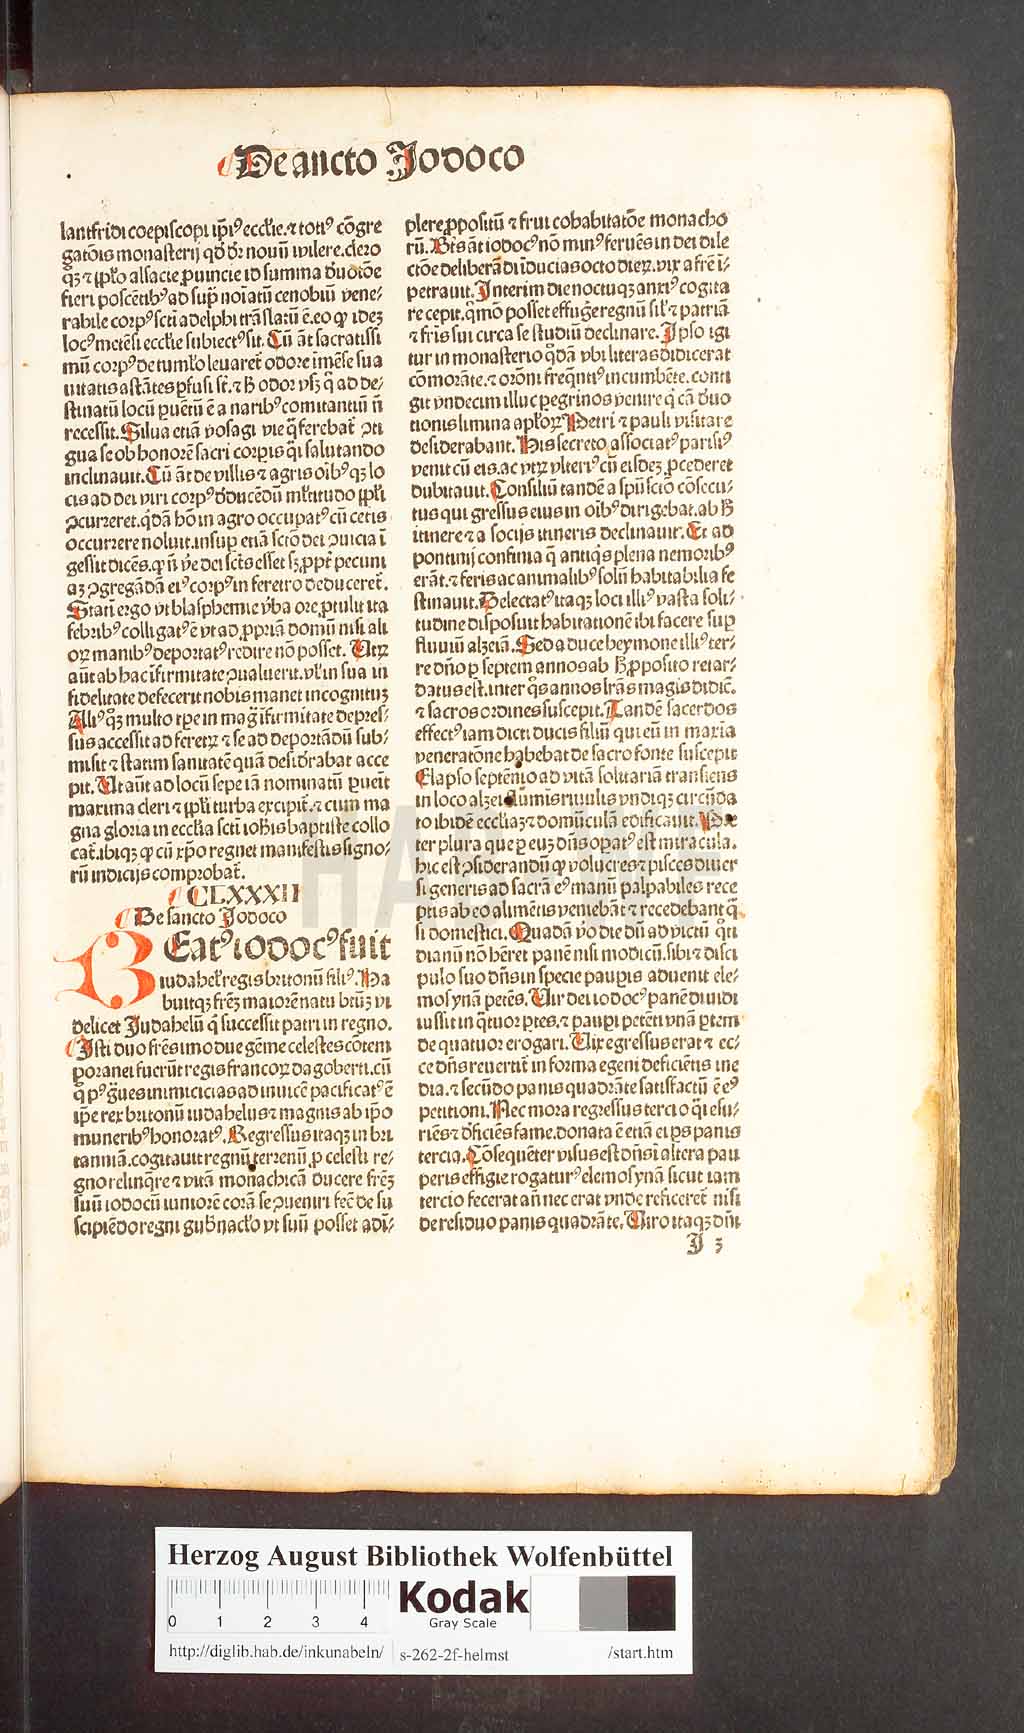 De ancto Jodoco
lantfridi coepiscopi ip̄iꝰ eccl'ie.⁊ totiꝰ cōgre
gatōis monasterij qd' dr̄ nouū wilere.clero
qꝫ ⁊ ppl'o alsacie ꝓuincie id summa d'uotōe
fieri poscētibꝰ ad sup̄ noīatū cenobiū vene⸗
rabile corpꝰ scti adelphi trāslatū ē.eo ꝙ idez
locꝰ metēsi eccl'ie subiectꝰ sit. Cū āt sacratissi
mū corpꝰ de tuml'o leuaret̄ odore īmēse sua
uitatis astātes ꝑfusi st̄.⁊ ħ odor vsqꝫ ad de⸗
stinatū locū ꝑuētū ē a naribꝰ comitantiū nō
recessit. Silua etiā vosagi vie q̄ ferebat̄ ꝯti
gua se ob honorē sacri corpis q̄si salutando
inclinauit. Cū āt de villis ⁊ agris oībꝰqꝫ lo
cis ad dei viri corpꝰ d'ducēdū ml'titudo ppl'i
ꝯcurreret.q'dā hō in agro occupatꝰ cū cetis
occurrere noluit.insup etiā sctō dei ꝯuicia ī
gessit dicēs.ꝙ nō vē dei sct̄s esset sꝫ ꝓpt̄ pecuni
az ꝯgregādā eiꝰ corpꝰ in feretro deduceret̄.
Statī ergo vt blasphemie v̄ba ore ꝓtulit ita
febribꝰ colligatꝰ ē vt ad ꝓpriā domū nisi ali
oꝝ manibꝰ deportatꝰ redire nō posset. Vtꝝ
aūt ab hac īfirmitate ꝯualuerit.vl' in sua in
fidelitate defecerit nobis manet incognituꝫ
Alliꝰ qꝫ multo tꝑe in mag̃ īfirmitate depres⸗
sus accessit ad feretꝝ ⁊ se ad deportādū sub⸗
misit ⁊ statim sanitatē quā desid'rabat acce
pit. Vt aūt ad locū sepe iā nominatū ꝑuēit
maxima cleri ⁊ ppl'i turba excipit̄.⁊ cum ma
gna gloria in eccl'ia scti ioħis baptiste collo
cat̄.ibiqꝫ ꝙ cū xp̄o regnet manifestis signo⸗
rū indicijs comprobat̄.
CLXXXII
De sancto Jodoco
BEatꝰ iodocꝰ fuit
iudahel' regis britonū filiꝰ. Ha
buitqꝫ frēꝫ maiorē natu btūꝫ vi
delicet Judahelū q̄ successit patri in regno.
Isti duo frēs imo due gēme celestes cōtem
poranei fuerūt regis francoꝝ dagoberti.cū
q̄ pꝰ g̃ues inimicicias ad inuicē pacificatꝰ ē
ip̄e rex britonū iudahelus ⁊ magnis ab ip̄o
muneribꝰ honoratꝰ. Regressus itaqꝫ in bri
tanniā.cogitauit regnū terrenū ꝓ celesti re⸗
gno relinq̄re ⁊ vitā monachicā ducere frēꝫ
suū iodocū iuniorē corā se ꝯueniri fec̄ de su
scipiēdo regni gub'nacl'o vt suū posset adī⸗
plere ꝓpositū ⁊ frui cohabitatōe monacho
rū. Btūs āt iodocꝰ nō minꝰ feruēs in dei dile
ctōe deliberādi īducias octo dieꝝ.vix a frē ī⸗
petrauit. Interim die noctuqꝫ anxiꝰ cogita
re cepit.q̄mō posset effug̃e regnū sil' ⁊ patriā
⁊ fr̄is sui circa se studiū declinare. Ipso igi
tur in monasterio q̄dā vbi literas didicerat
cōmorāte.⁊ orōni freq̄ntiꝰ incumbēte.conti
git vndecim illuc ꝑegrinos venire q̄ cā d'uo
tionis limina apl'oꝝ Petri ⁊ pauli visitare
desiderabant. His secreto associatꝰ parisiꝰ
venit cū eis.ac vtꝝ vlteriꝰ cū eisdez ꝓcederet
dubitauit. Consiliū tandē a spū sctō cōsecu⸗
tus qui gressus eius in oībꝰ dirigebat.ab ħ
itinere ⁊ a socijs itineris declinauit. Et ad
pontinij confinia q̄ antiq̄s plena nemoribꝰ
erāt.⁊ feris ac animalibꝰ solū habitabilia fe
stinauit. Delectatꝰ itaqꝫ loci illiꝰ vasta soli⸗
tudine disposuit habitationē ibi facere sup
fluuiū alzeiā. Sed a duce heymone illiꝰ ter⸗
re dn̄o ꝑ septem annos ab ħ ꝓposito retar⸗
datus est.inter q̄s annos lr̄as magis didic̄.
⁊ sacros ordines suscepit. Tandē sacerdos
effectꝰ iam dicti ducis filiū qui eū in maxīa
veneratōne habebat de sacro fonte suscepit
Elapso septēnio ad vitā solitariā transiens
in loco alzei flumīs riuulis vndiqꝫ circūda
to ibidē eccl'iaꝫ ⁊ domūculā edificauit. Pre
ter plura que ꝑ euꝫ dn̄s opatꝰ est miracula.
hic est ꝯsiderandū ꝙ volucres ⁊ pisces diuer
si generis ad sacrā eiꝰ manū palpabiles rece
ptis ab eo alimētis veniebāt ⁊ recedebant q̄
si domestici. Quadā v'o die dū ad victū q̄ti
dianū nō hēret panē nisi modicū.sibi ⁊ disci
pulo suo dn̄s in specie paupis aduenit ele⸗
mosynā petēs. Vir dei iodocꝰ panē diuidi
iussit in q̄tuor ꝑtes.⁊ paupi petēti vnā ꝑtem
de quatuor erogari. Vix egressus erat ⁊ ec⸗
ce dn̄s reuertit̄ in forma egeni deficiētis ine
dia.⁊ secūdo panis quadrāte satisfactū ē eiꝰ
petitioni. Nec mora regressus tercio q̄si esu⸗
riēs ⁊ d'ficiēs fame.donata ē etiā ei ꝑs panis
tercia. Cōsequēter visus est dn̄s ī altera pau
peris effigie rogaturꝰ elemosynā sicut iam
tercio fecerat añ nec erat vnde reficeret̄ nisi
de residuo panis quadrāte. Viro itaqꝫ dn̄i
J 3
HAB WF
Herzog August Bibliothek Wolfenbüttel
0 1 2 3 4
Kodak
Gray Scale
http://diglib.hab.de/inkunabeln/ s-262-2f-helmst /start.htm